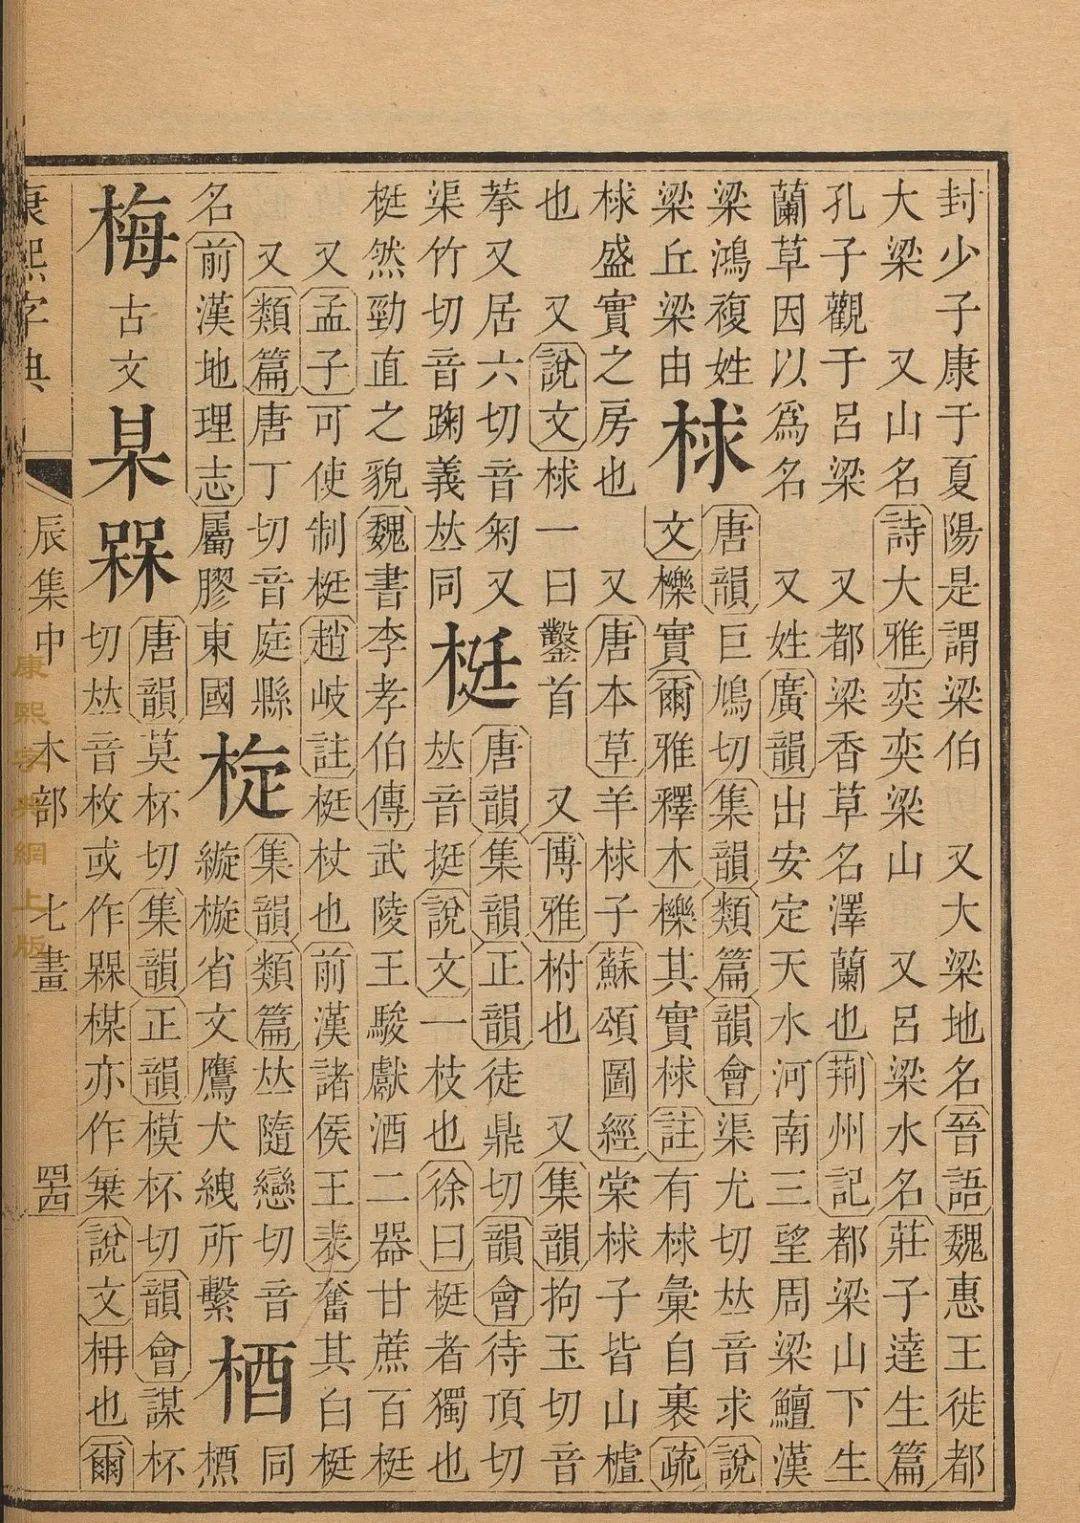 封少子康于夏陽是謂梁伯 又大梁地名晉語魏惠王徙都
大梁 又山名詩大雅奕奕梁山 又呂梁水名莊子達生篇
孔子觀于呂梁 又都梁香草名澤蘭也荆州記都梁山下生
蘭草因以爲名 又姓廣韻出安定天水河南三望周梁鱣漢
梁鴻複姓
梁丘梁由
梂
唐韻巨鳩切集韻類篇韻會渠尤切𠀤音求說
文櫟實爾雅釋木櫟其實梂註有梂彙自裹疏
梂盛實之房也 又唐本草羊梂子蘇頌圖經棠梂子皆山樝
也 又說文梂一曰鑿首 又博雅柎也 又集韻拘玉切音
又居六切音匊又
渠竹切音踘義𠀤同
梃
唐韻集韻正韻徒鼎切韻會待頂切
𠀤音挺說文一枝也徐曰梃者獨也
梃然勁直之貌魏書李孝伯傳武陵王駿獻酒二器甘蔗百梃
又孟子可使制梃趙岐註梃杖也前漢諸侯王表奮其白梃
又類篇唐丁切音庭縣
名前漢地理志屬膠東國
集韻類篇𠀤隨戀切音
縼省文鷹犬紲所繫
梄
同
槱
梅
古文
槑
唐韻莫杯切集韻正韻模杯切韻會謀杯
切𠀤音枚或作楳亦作說文枏也爾
康熙字典
辰集中 木部 七畫
康熙字典網上版